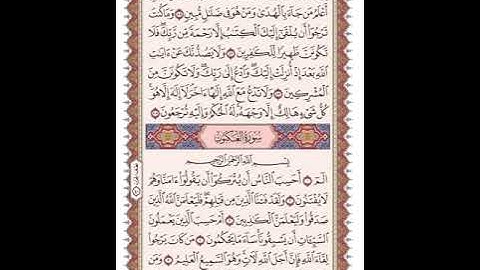 أَعْلَمُ مَن جَآءَ بِٱلْهُدَىٰ وَمَنْ هُوَ فِى ضَلَٰلٍ مُّبِينٍ ۝ وَمَا كُنتَ
تَرْجُوٓا۟ أَن يُلْقَىٰٓ إِلَيْكَ ٱلْكِتَٰبُ إِلَّا رَحْمَةً مِّن رَّبِّكَ ۖ فَلَا
تَكُونَنَّ ظَهِيرًا لِّلْكَٰفِرِينَ ۝ وَلَا يَصُدُّنَّكَ عَنْ ءَايَٰتِ
ٱللَّهِ بَعْدَ إِذْ أُنزِلَتْ إِلَيْكَ ۖ وَٱدْعُ إِلَىٰ رَبِّكَ ۖ وَلَا تَكُونَنَّ مِنَ
ٱلْمُشْرِكِينَ ۝ وَلَا تَدْعُ مَعَ ٱللَّهِ إِلَٰهًا ءَاخَرَ ۘ لَآ إِلَٰهَ إِلَّا هُوَ ۚ
كُلُّ شَىْءٍ هَالِكٌ إِلَّا وَجْهَهُۥ ۚ لَهُ ٱلْحُكْمُ وَإِلَيْهِ تُرْجَعُونَ ۝
سُورَةُ العَنكَبُوتِ
بِسْمِ ٱللَّهِ ٱلرَّحْمَٰنِ ٱلرَّحِيمِ
الٓمٓ ۝ أَحَسِبَ ٱلنَّاسُ أَن يُتْرَكُوٓا۟ أَن يَقُولُوٓا۟ ءَامَنَّا وَهُمْ
لَا يُفْتَنُونَ ۝ وَلَقَدْ فَتَنَّا ٱلَّذِينَ مِن قَبْلِهِمْ ۖ فَلَيَعْلَمَنَّ ٱللَّهُ ٱلَّذِينَ
صَدَقُوا۟ وَلَيَعْلَمَنَّ ٱلْكَٰذِبِينَ ۝ أَمْ حَسِبَ ٱلَّذِينَ يَعْمَلُونَ
ٱلسَّيِّـَٔاتِ أَن يَسْبِقُونَا ۚ سَآءَ مَا يَحْكُمُونَ ۝ مَن كَانَ يَرْجُوا۟
لِقَآءَ ٱللَّهِ فَإِنَّ أَجَلَ ٱللَّهِ لَءَاتٍ ۚ وَهُوَ ٱلسَّمِيعُ ٱلْعَلِيمُ ۝ وَمَن